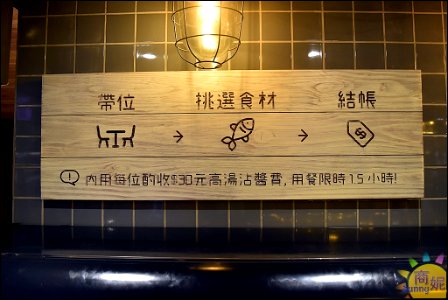 帶位 → 挑選食材 → 結帳
$
! 內用每位酌收$30元高湯沾醬費, 用餐限時1.5小時!
商妮
Sunny